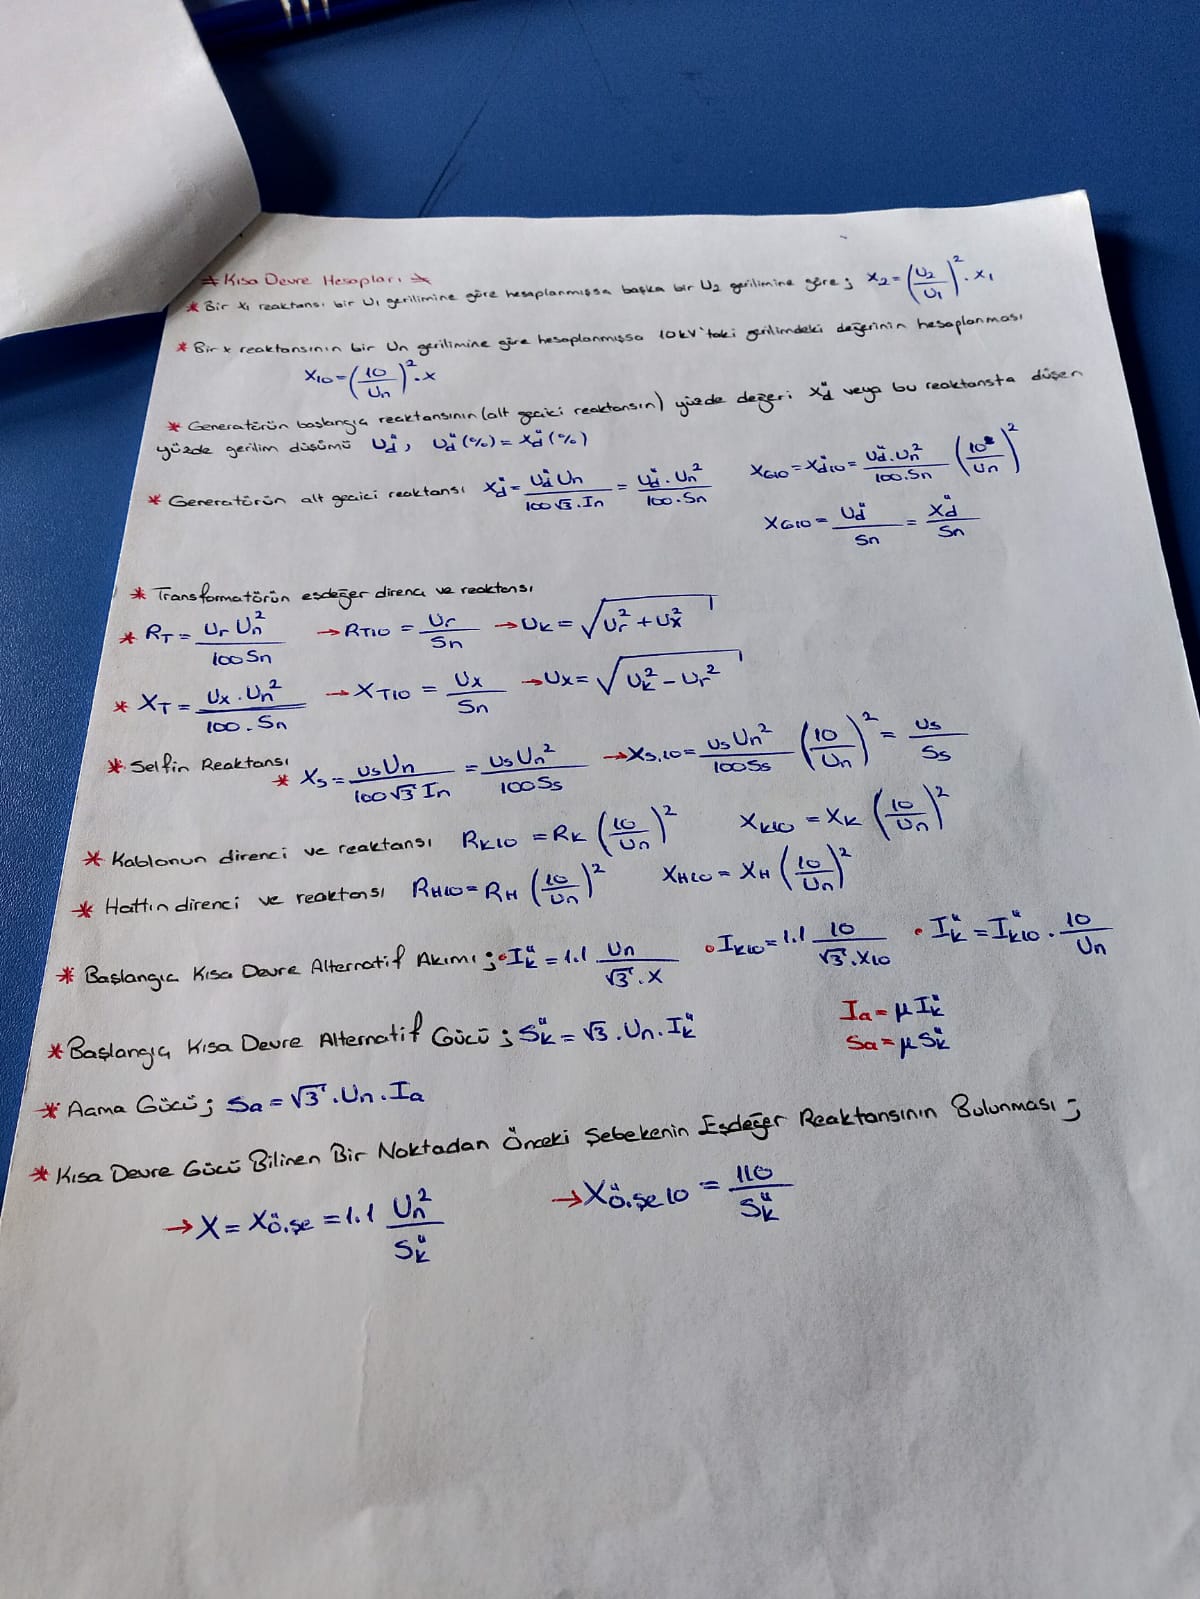 * Kısa Devre Hesapları *
* Bir X₁ reaktansı bir U₁ gerilimine göre hesaplanmışsa başka bir U₂ gerilimine göre; X₂ = (U₂/U₁)² . X₁
* Bir x reaktansının bir Un gerilimine göre hesaplanmışsa 10kV'taki gerilimdeki değerinin hesaplanması
X₁₀ = (10/Un)² . x
* Generatörün başlangıç reaktansının (alt geçici reaktansın) yüzde değeri Xd" veya bu reaktansta düşen
yüzde gerilim düşümü Ud", Ud"(%) = Xd"(%)
* Generatörün alt geçici reaktansı Xd" = Ud" Un / 100√3 . In = Ud" . Un² / 100 . Sn XG10 = Xd"10 = Ud" . Un² / 100 . Sn (10/Un)²
XG10 = Ud" / Sn = Xd" / Sn
* Transformatörün eşdeğer direnci ve reaktansı
* RT = Ur Un² / 100 Sn → RT10 = Ur / Sn → Uk = √(Ur² + Ux²)
* XT = Ux . Un² / 100 . Sn → XT10 = Ux / Sn → Ux = √(Uk² - Ur²)
* Selfin Reaktansı
* Xs = Us Un / 100√3 In = Us Un² / 100 Ss → Xs,10 = Us Un² / 100 Ss (10/Un)² = Us / Ss
* Kablonun direnci ve reaktansı RK10 = RK (10/Un)² XK10 = XK (10/Un)²
* Hattın direnci ve reaktansı RH10 = RH (10/Un)² XH10 = XH (10/Un)²
* Başlangıç Kısa Devre Alternatif Akımı ; • Ik" = 1.1 Un / √3 . X • Ik10 = 1.1 10 / √3 . X10 • Ik" = Ik10" . 10 / Un
Ia = μ Ik"
* Başlangıç Kısa Devre Alternatif Gücü ; Sk" = √3 . Un . Ik" Sa = μ Sk"
* Açma Gücü ; Sa = √3 . Un . Ia
* Kısa Devre Gücü Bilinen Bir Noktadan Önceki Şebekenin Eşdeğer Reaktansının Bulunması ;
→ X = Xö.şe = 1.1 Un² / Sk" → Xö.şe10 = 110 / Sk"